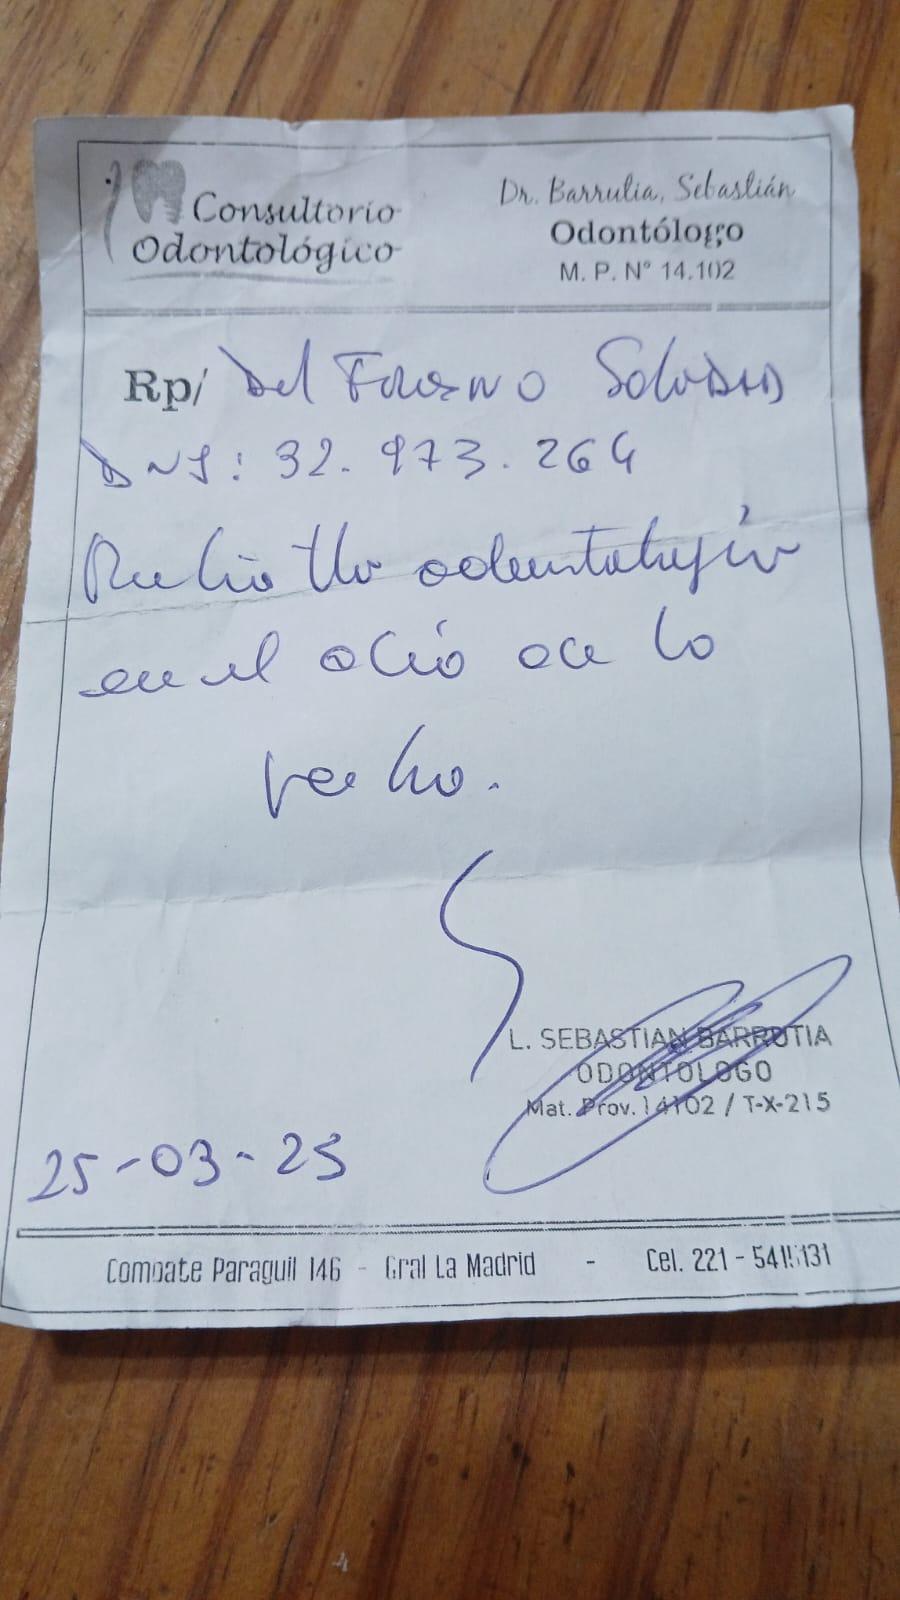 Consultorio
Odontológico
Dr. Barrulia, Sebastián
Odontólogo
M. P. N° 14.102
Rp/ Del Fresno Soledad
DNI: 32.973.264
Recibió tto odontológico
en el día de la
fecha.
L. SEBASTIAN BARRUTIA
ODONTOLOGO
Mat. Prov. 14102 / T-X-215
25-03-25
Combate Paraguil 146 - Gral La Madrid - Cel. 221 - 5415131